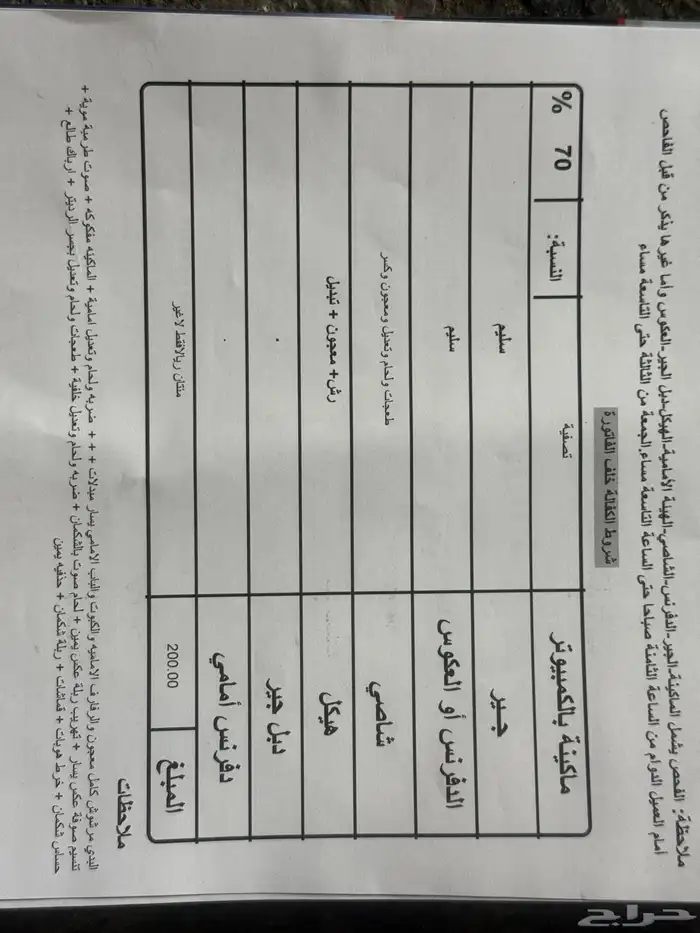 ملاحظة: الفحص يشمل الماكينة-الجير-الدفرنس-الشاصي-الهيئة الأمامية-الهيكل-دبل الجير-العكوس وأما غيرها يذكر من قبل الفاحص
أمام العميل الدوام من الساعة الثامنة صباحا حتى الساعة التاسعة مساء,الجمعة من الثالثة حتى التاسعة مساء
شروط الكفالة خلف الفاتورة
ماكينة بالكمبيوتر تصفية النسبة: 70 %
جير سليم
الدفرنس أو العكوس سليم
شاصي طعجات ولحام وتعديل ومعجون وكسر
هيكل رش+ معجون + تبديل
دبل جير .
دفرنس أمامي .
المبلغ 200.00 مئتان ريالافقط لاغير
ملاحظات
البدي مرشوش كامل معجون والرفارف الاماميه والكبوت والباب الامامي يسار مبدلات + + + ضربه ولحام وتعديل امامية + الماكينه مفكوكه + صوت طرمبة موية +
تنسيم صوفة عكس يسار + تهريب ربلة عكس يمين + لحام صوت بالشكمان + ضربه ولحام وتعديل خلفية + طعجات ولحام وتعديل بجسر الرديتر + ارباك طالع +
حساس شكمان + خرط هوبات + قماشات + ربلة شكمان + حذفيه يمين
حراج